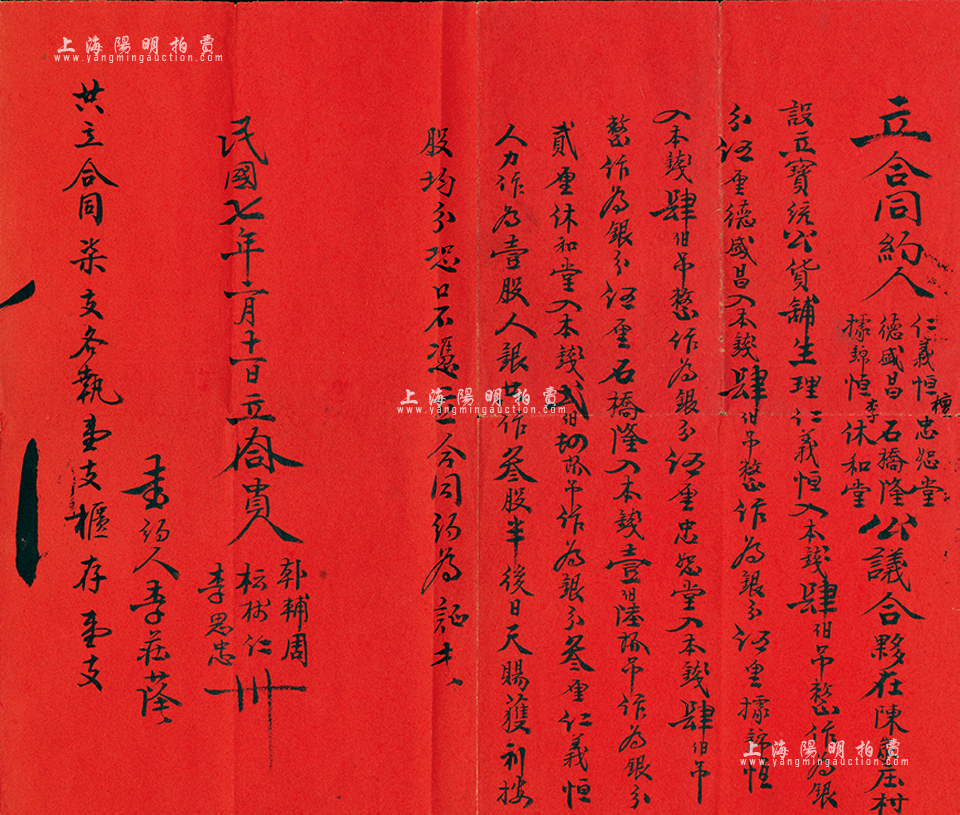 立合同約人
仁義恒 忠恕堂
德盛昌 石橋隆
據錦恒 李休和堂
公議合夥在陳 庄村
設立寶統公貨舖生理仁義恒入本錢肆佰吊整作為銀
分伍厘德盛昌入本錢肆佰吊整作為銀分伍厘據錦恒
入本錢肆佰吊整作為銀分伍厘忠恕堂入本錢肆佰吊
整作為銀分伍厘石橋隆入本錢壹佰陸拾吊作為銀分
貳厘休和堂入本錢貳佰 拾吊作為銀分叁厘仁義恒
人力作為壹股人銀共作叁股半後日天賜獲利按
股均分恐口不憑立合同約為証
民國七年 月十一日立
輔周
樹仁
李思忠
書約人李莊
共立合同柒支各執壹支櫃存壹支
上海陽明拍賣
www.yangmingauction.com
上海陽明拍賣
www.yangmingauction.com
上海陽明拍賣
www.yangmingauction.com